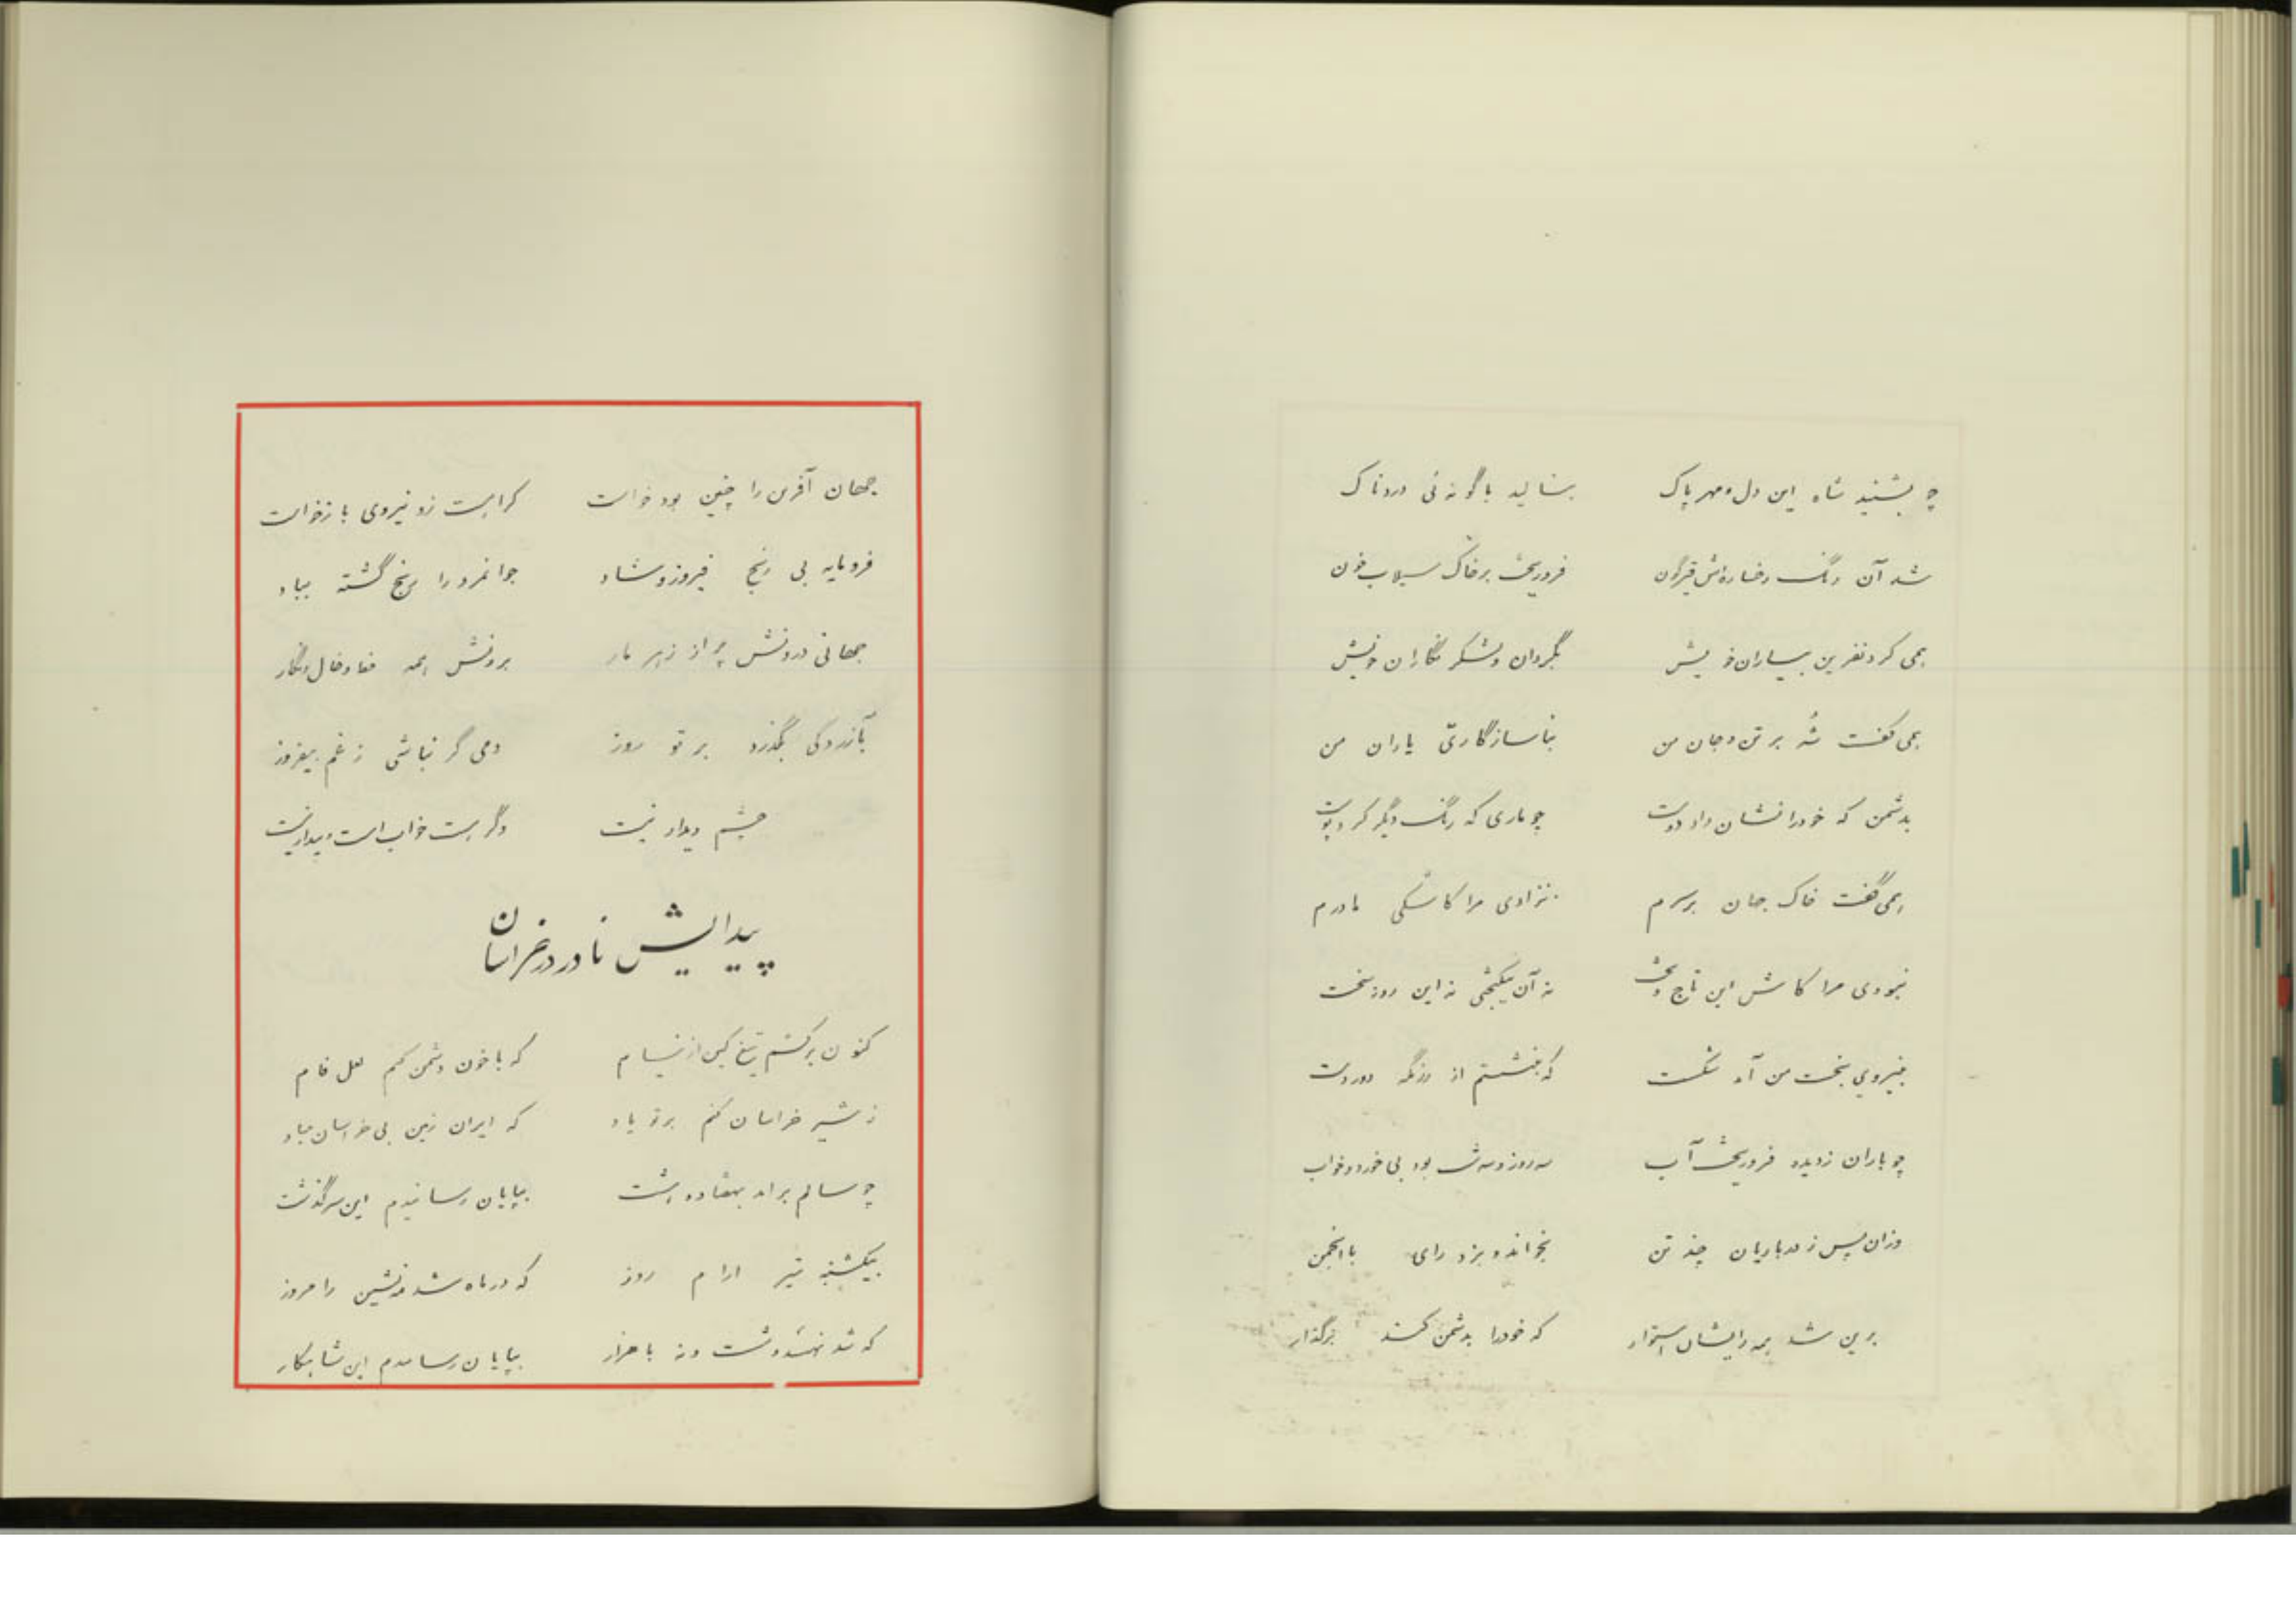 چو بشنید شاه این دل و مهر پاک بنالید با گونه‌ئی دردناک
شد آن رنگ رخساره‌اش قیرگون فروریخت بر خاک سیلاب خون
همی کرد نفرین بیاران خویش بگردان و لشکر نگاران خویش
همی گفت شه بر تن و جان من بناسازگاری یاران من
بدشمن که خود را نشان داد دوست چو ماری که رنگ دگر کرد پوست
همی گفت خاک جهان بر سرم نزادی مرا کاشکی مادرم
نبودی مرا کاش این تاج و تخت نه آن نیکبختی نه این روز سخت
بنیروی بخت من آمد شکست که بنشستم از رزمگه دور دست
چو باران ز دیده فروریخت آب سه روز و سه شب بود بی خورد و خواب
وزان پس ز درباریان چند تن بخواند و بزد رای با انجمن
برین شد همه رایشان استوار که خود را بدشمن کند برگذار
جهان آفرین را چنین بود خواست کرا هست زو نیروی بازخواست
فرومایه بی رنج فیروز و شاد جوانمرد را رنج گشته بباد
جهانی درونش پر از زهر مار برونش همه خط و خال و نگار
بآزردگی بگذرد بر تو روز دمی گر نباشی ز غم بیفروز
چشم دیدار نیست وگر هست خواب است و بیدار نیست
پیدایش نادر در خراسان
کنون برکشم تیغ کین از نیام که با خون دشمن کنم لعل فام
ز شیر خراسان کنم بر تو یاد که ایران زمین بی خراسان مباد
چو سالم برآمد بهفتاد و هشت بپایان رسانیدم این سرگذشت
بیکشنبه تیر آرام روز که در ماه شد رامروز
که شد با هزار بپایان رساندم این شاهکار